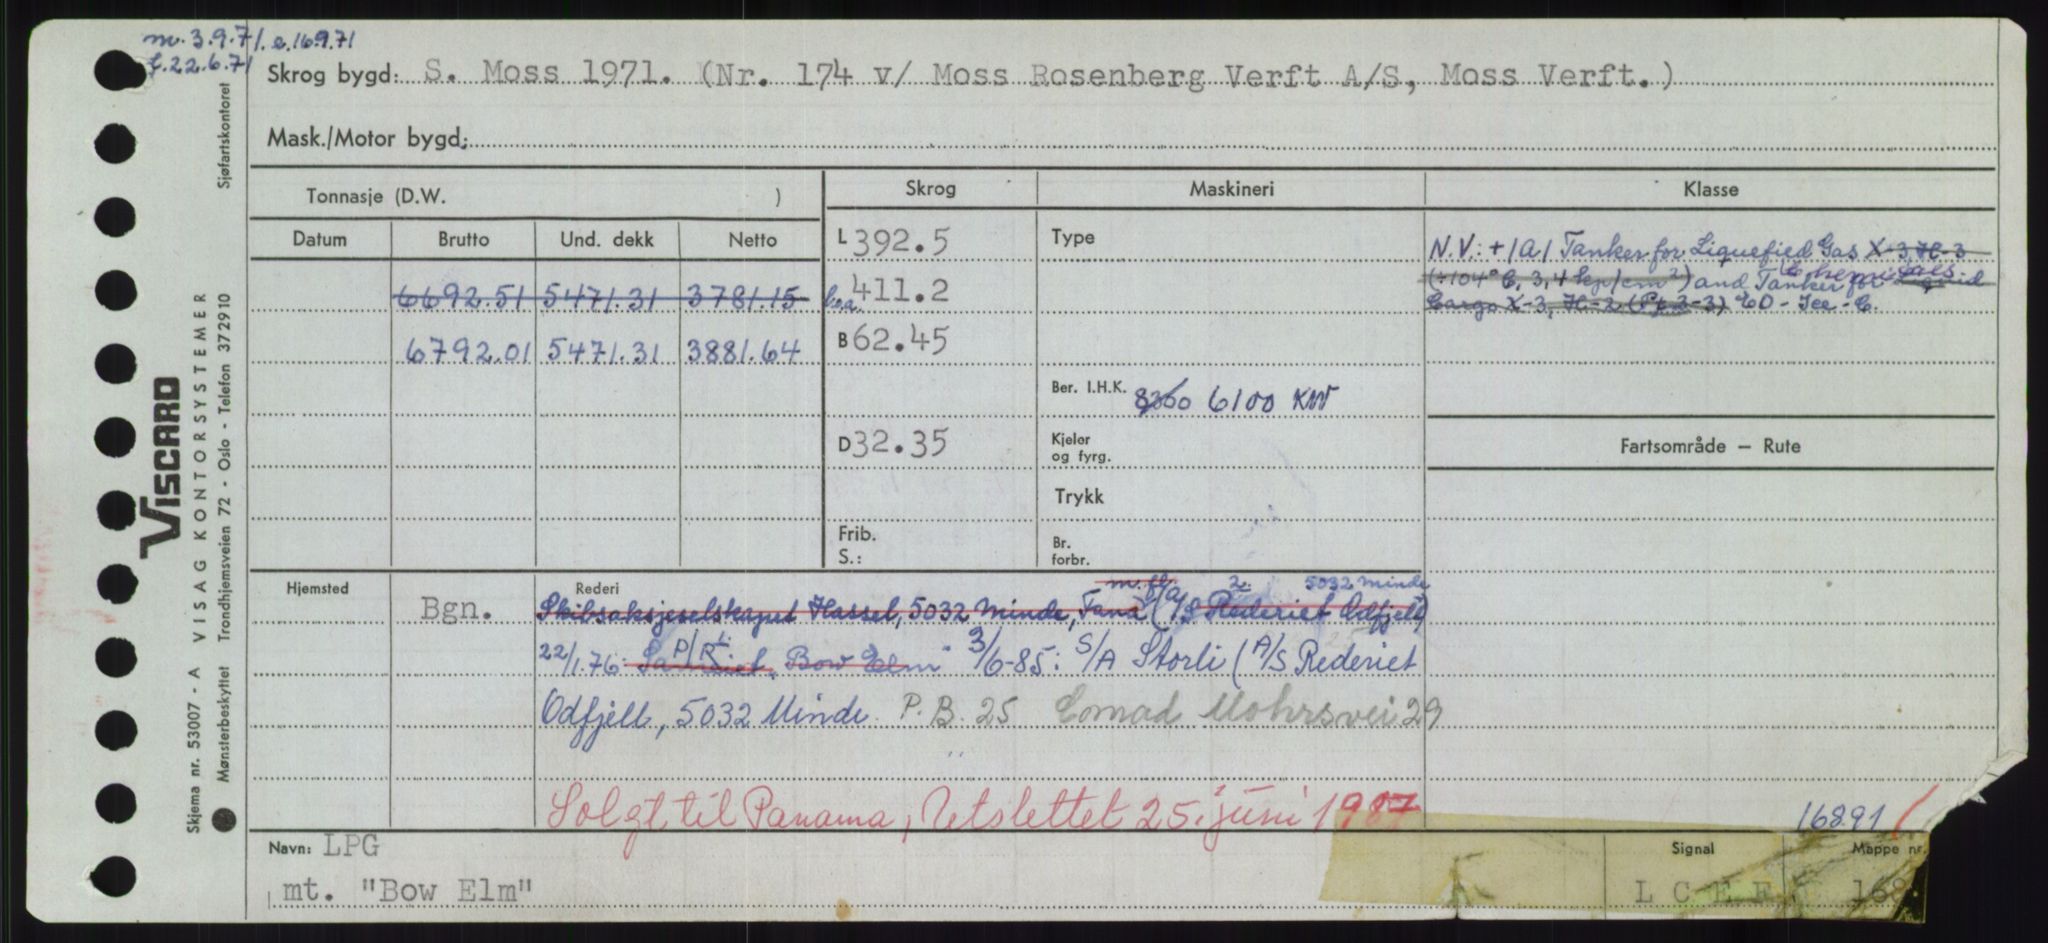 m. 3.9.71. e. 16.9.71
f. 22.6.71
Skrog bygd: S. Moss 1971. (Nr. 174 v/ Moss Rosenberg Verft A/S, Moss Verft.)
Mask./Motor bygd:
Tonnasje (D.W. )
Skrog Maskineri Klasse
Datum Brutto Und. dekk Netto
L 392.5 Type
N.V.: + 1A1 Tanker for Liquefied Gas X-3, H-3
(÷104°C, 3,4 kp/cm²) and Tanker for Liquid Chemicals
Cargo X-3, H-2 (Pt 2-3) EO - Ice - C.
6692.51 5471.31 3781.15 l.o.a. 411.2
6792.01 5471.31 3881.64 B 62.45
Ber. I.H.K. 8260 6100 KW
D 32.35 Kjeler og fyrg. Fartsområde — Rute
Trykk
Frib. S.: Br. forbr.
Hjemsted Rederi
m. fl. 2. 5032 Minde
Bgn. Skibsaksjeselskapet Hassel, 5032 Minde, Fana (A/S Rederiet Odfjell)
22/1.76 P/R Bow Elm" 3/6-85: S/A Storli (A/S Rederiet
Odfjell, 5032 Minde P.B. 25 Conrad Mohrsvei 29
Solgt til Panama, Retslettet 25. juni 1987
16891
Navn: LPG Signal Mappe nr.
mt. "Bow Elm" L C E F 168
Sjøfartskontoret
VISCARD
VISAG KONTORSYSTEMER
Trondhjemsveien 72 - Oslo - Telefon 372910
Skjema nr. 53007 - A
Mønsterbeskyttet